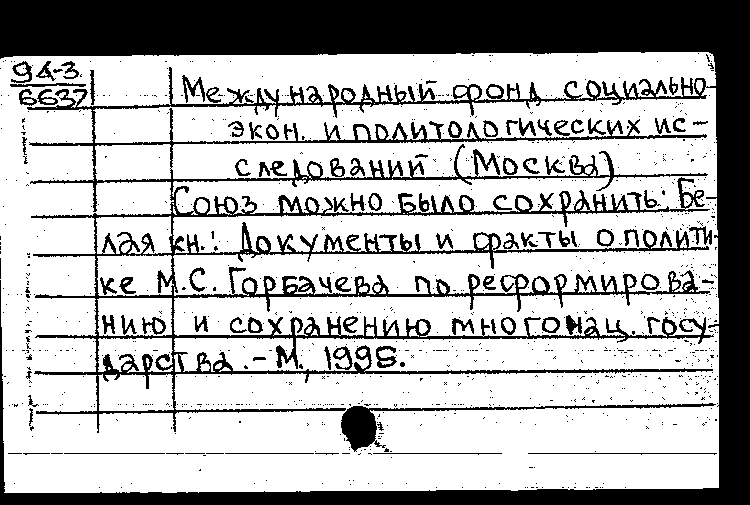 94-3
6637
Международный фонд социально-
экон. и политологических ис-
следований (Москва)
Союз можно было сохранить: Бе-
лая кн.: Документы и факты о полити-
ке М.С. Горбачева по реформирова-
нию и сохранению многонац. госу-
дарства. - М., 1995.